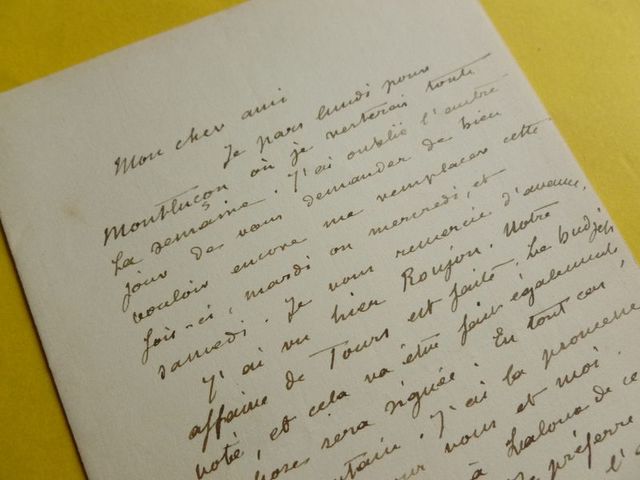 Mon cher ami
Je pars lundi pour
Montluçon où je resterai toute
la semaine. J'ai oublié l'autre
jour de vous demander de bien
vouloir encore me remplacer cette
fois-ci, mardi ou mercredi, et
samedi. Je vous remercie d'avance.
J'ai vu hier Roujon. Notre
affaire de Tours est faite. Le budget
voté, et cela va être fait également
chose sera signée. En tout cas,
J'ai la promesse
pour vous et moi.
à Laloux de ce
préfère
l'a